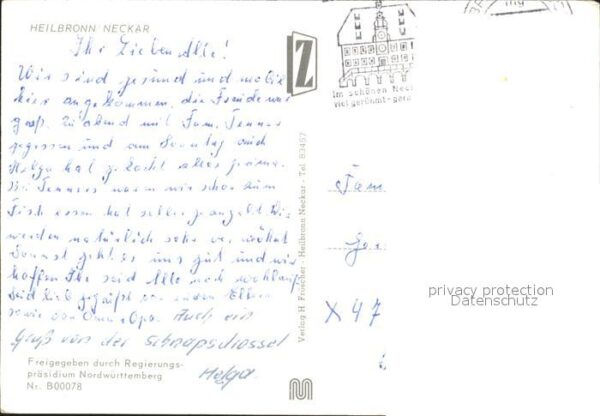 HEILBRONN/NECKAR
Ihr Lieben Alle!
Wir sind gesund und mobil
hier angekommen, die Freude war
groß. Zu abend mit Fam. Tenners
gegessen und am Sonntag auch
Helga hat gekocht alles prima.
Bei Tenners waren wir schon zum
Fisch essen hat selber geangelt. Wir
werden natürlich sehr verwöhnt
Sonnst geht es uns gut und wir
hoffen Ihr seid Alle noch wohlauf.
Seid lieb gegrüßt von euren Eltern
sowie von Oma + Opa. Auch ein
Gruß von der Schnapsdrossel
Helga.
Freigegeben durch Regierungs-
präsidium Nordwürttemberg
Nr. B00078
Z
Verlag H. Fröscher · Heilbronn Neckar · Tel. 83457
Im schönen Nec
viel gerühmt-gern
Fam
X 47
privacy protection
Datenschutz